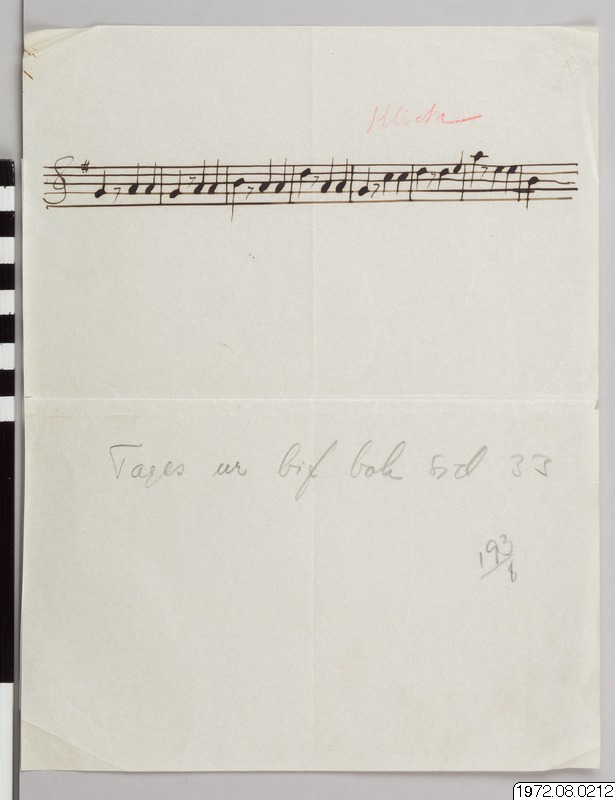 Kliche
Tages ur bif bok sid 33
193/8
1972.08.0212